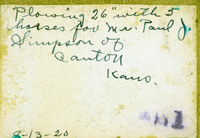 Plowing 26" with 5
horses for Mr. Paul J.
Simpson of
Canton
Kans.
8-13-20